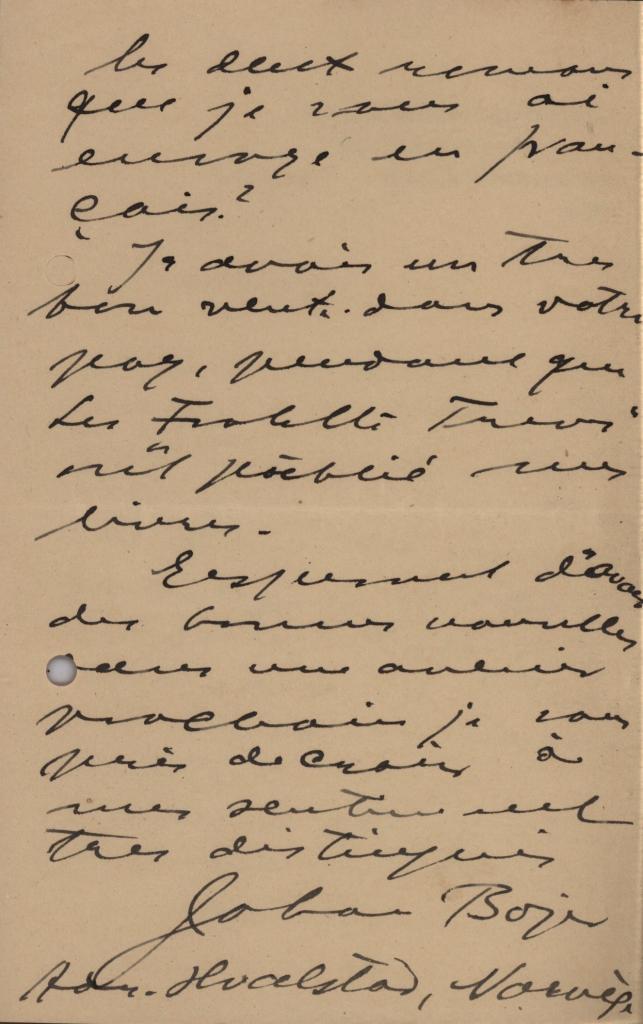 les deux romans
que je vous ai
envoyé en fran-
çais?
Je avais un tres
bon vente dans votre
pay, pendant que
Les Fratelli Treves
ont publié mes
livres.
Eesperant d'avoir
des bonnes nouvelles
dans une avenir
prochain je vous
priè de croire à
mes sentiment
tres distingués
Johan Bojer
Adr. Hvalstad, Norvège